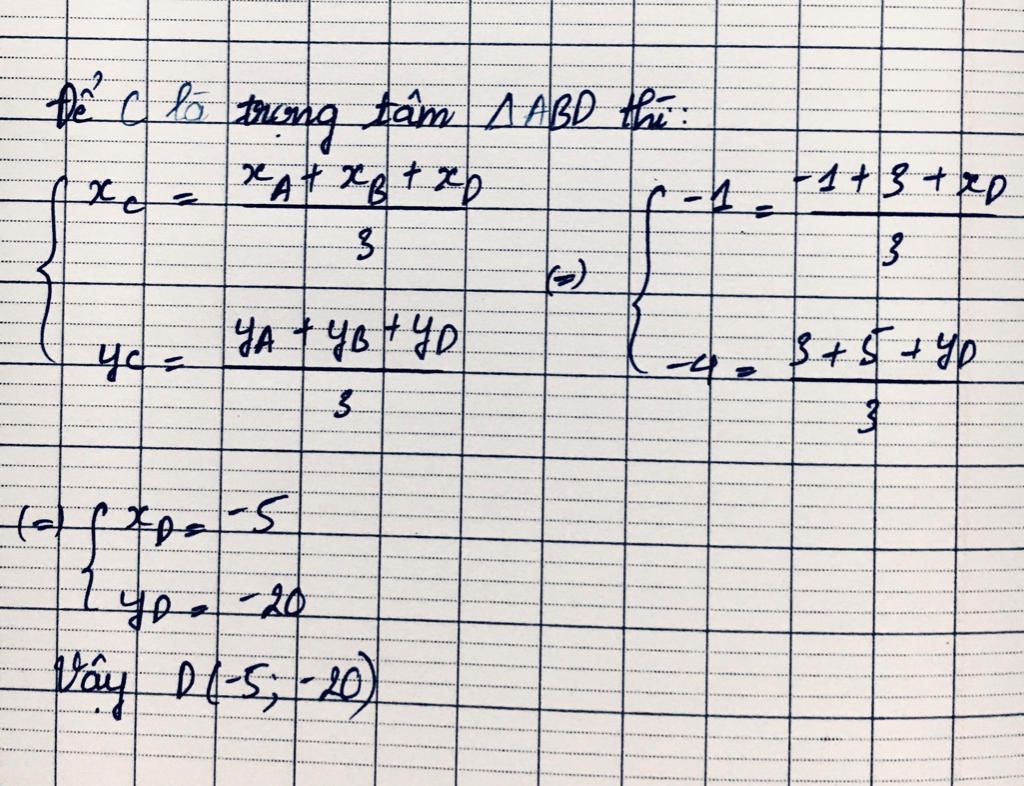 Để C là trọng tâm ΔABD thì:
{ x_C = (x_A + x_B + x_D)/3
y_C = (y_A + y_B + y_D)/3
(=) { -1 = (-1 + 3 + x_D)/3
-4 = (3 + 5 + y_D)/3
(=) { x_D = -5
y_D = -20
Vậy D(-5; -20)